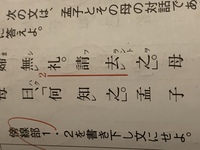 次の文は、孟子とその母の対話であ
に答えよ。
無礼。請フ去ラント之ヲ。母
曰ハク、何知之。孟子
傍線部1・2を書き下し文にせよ。